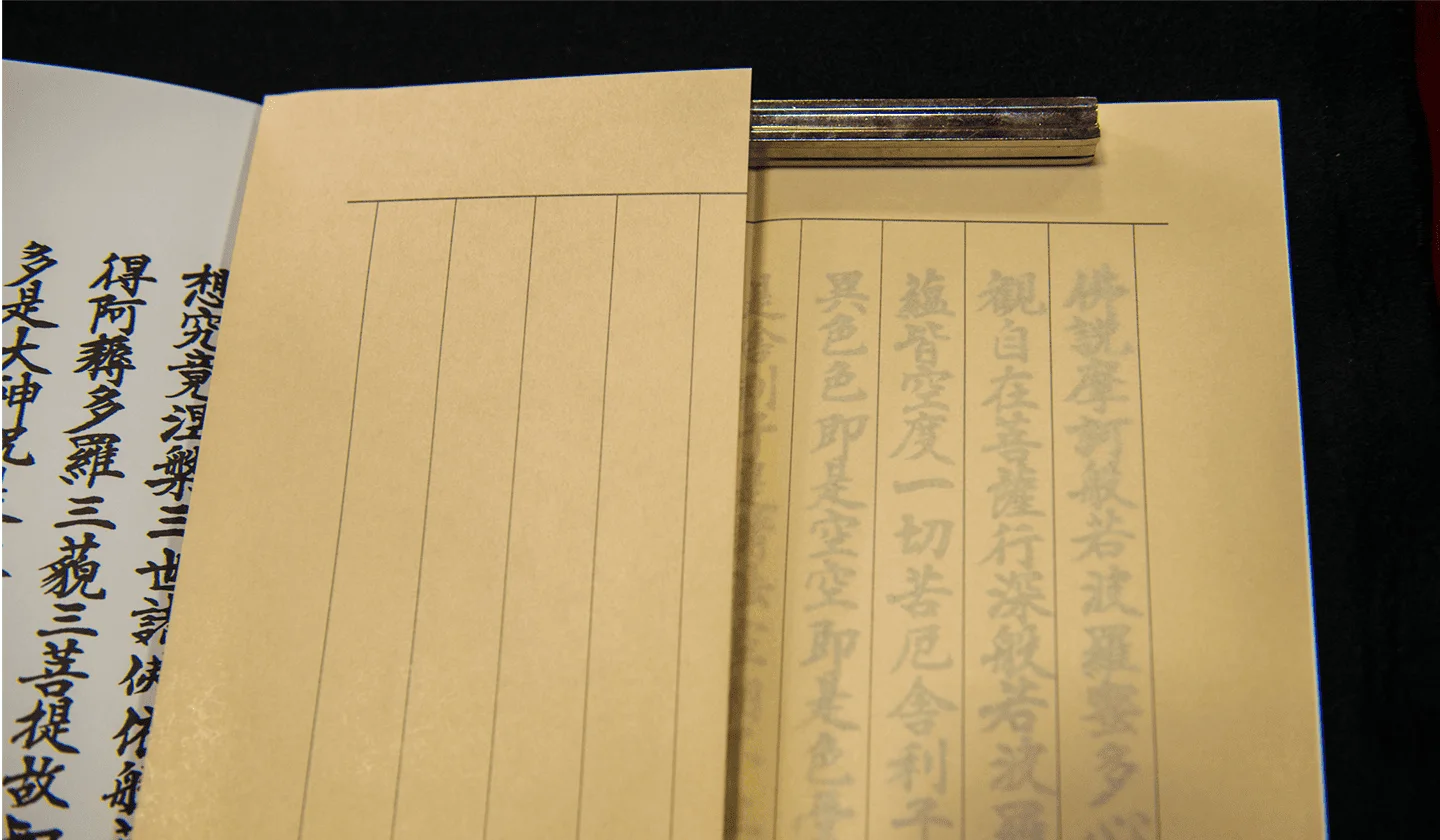 佛説摩訶般若波羅蜜多心
観自在菩薩行深般若波羅
蘊皆空度一切苦厄舎利子
異色色即是空空即是色受
想究竟涅槃三世諸佛依般
得阿耨多羅三藐三菩提故知
多是大神呪